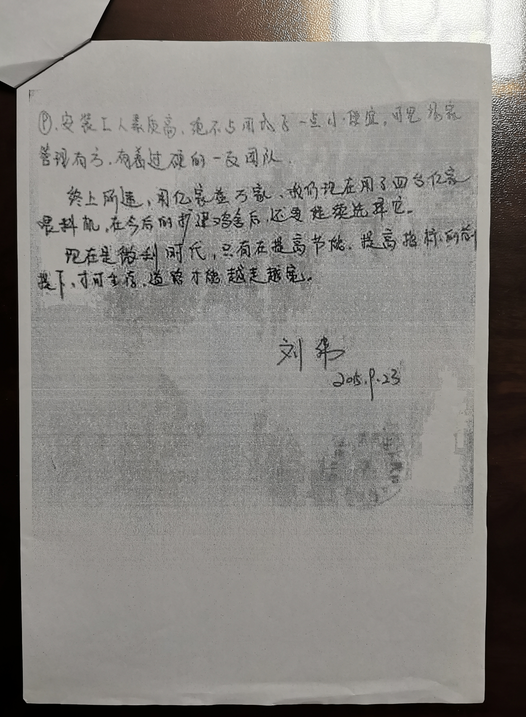 ⑨.安装工人素质高、绝不占用户一点小便宜,可见亿家
管理有方.有着过硬的一支团队.
终上所述,用亿家益万家、我们现在用了四台亿家
喂料机,在今后的扩建鸡舍后,还要继续选择它。
现在是微利时代,只有在提高节能、提高指标的前
提下、才可生存,道路才能越走越宽。
刘伟
2015.9.23